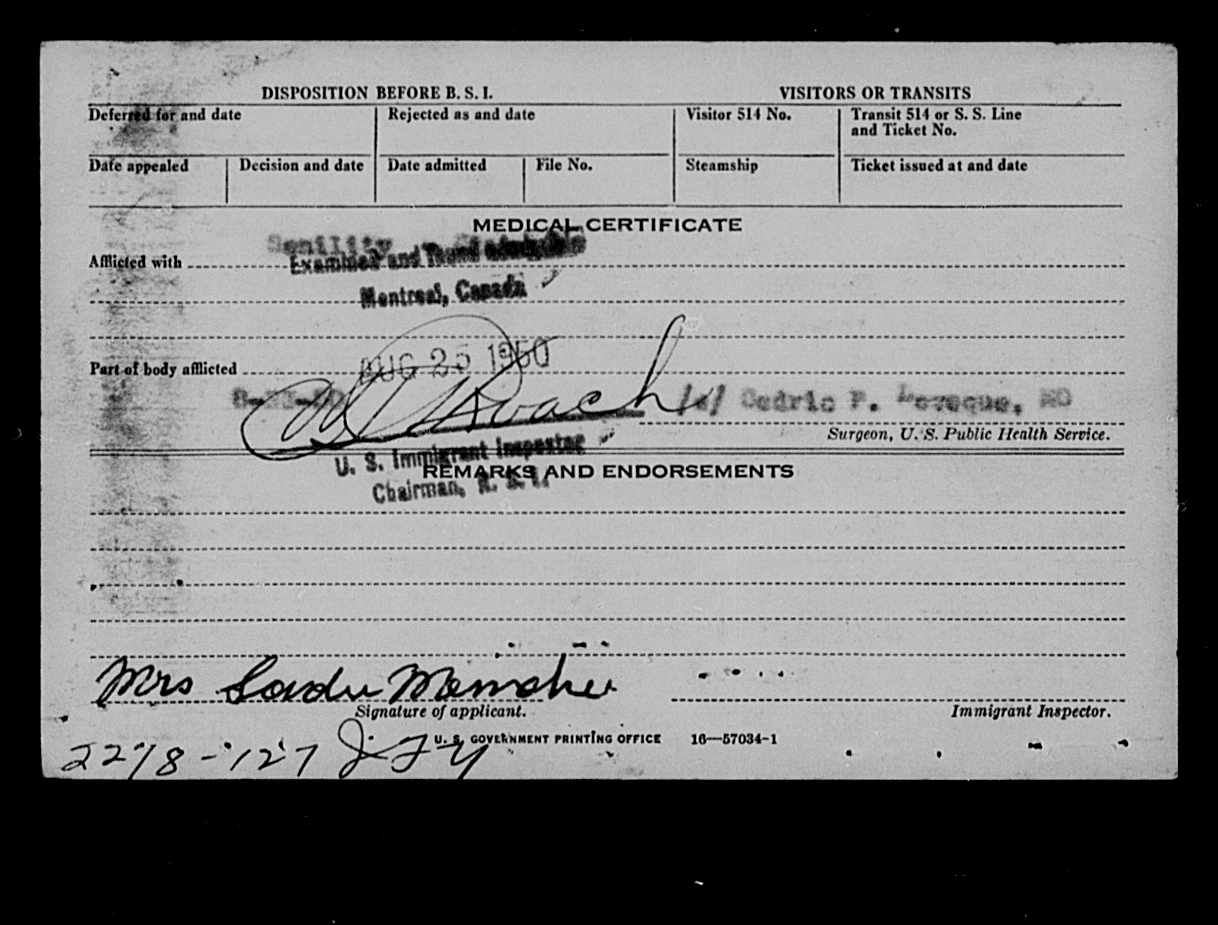 DISPOSITION BEFORE B. S. I. VISITORS OR TRANSITS
Deferred for and date Rejected as and date Visitor 514 No. Transit 514 or S. S. Line and Ticket No.
Date appealed Decision and date Date admitted File No. Steamship Ticket issued at and date
MEDICAL CERTIFICATE
Senility
Afflicted with
Examined and
Montreal, Canada
AUG 25 1950
Part of body afflicted
/s/ Cedric F. MD
Surgeon, U. S. Public Health Service.
U. S. Immigrant Inspector
REMARKS AND ENDORSEMENTS
Chairman, S. I.
Mrs
Signature of applicant. Immigrant Inspector.
U. S. GOVERNMENT PRINTING OFFICE 16—57034-1
2278-127